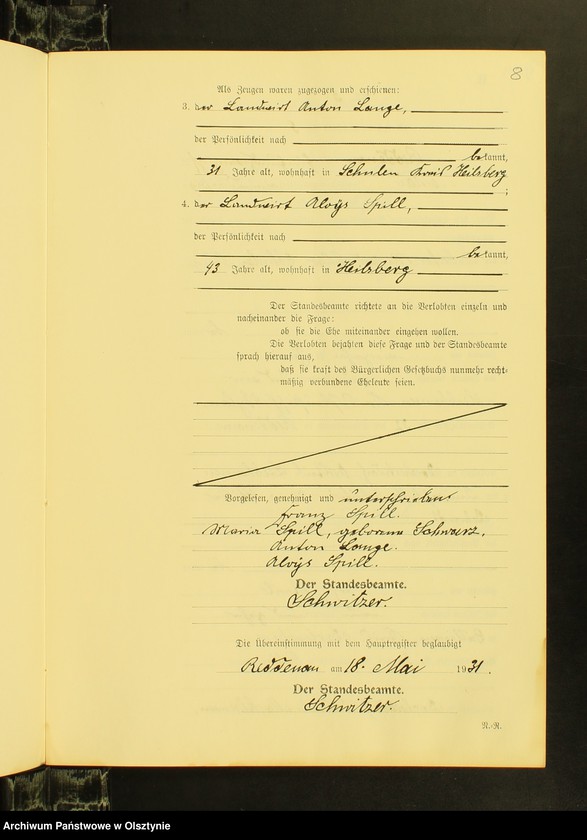 8
Als Zeugen waren zugezogen und erschienen:
3. der Landwirt Anton Lange,
der Persönlichkeit nach
bekannt,
31 Jahre alt, wohnhaft in Schulen Kreis Heilsberg
;
4. der Landwirt Aloys Spill,
der Persönlichkeit nach
bekannt,
43 Jahre alt, wohnhaft in Heilsberg
Der Standesbeamte richtete an die Verlobten einzeln und
nacheinander die Frage:
ob sie die Ehe miteinander eingehen wollen.
Die Verlobten bejahten diese Frage und der Standesbeamte
sprach hierauf aus,
daß sie kraft des Bürgerlichen Gesetzbuchs nunmehr recht-
mäßig verbundene Eheleute seien.
Vorgelesen, genehmigt und unterschrieben
Franz Spill.
Maria Spill, geborene Schwarz.
Anton Lange.
Aloys Spill.
Der Standesbeamte.
Schwitzer.
Die Übereinstimmung mit dem Hauptregister beglaubigt
Reddenau am 18. Mai 1931.
Der Standesbeamte.
Schwitzer.
N.-R.
Archiwum Państwowe w Olsztynie